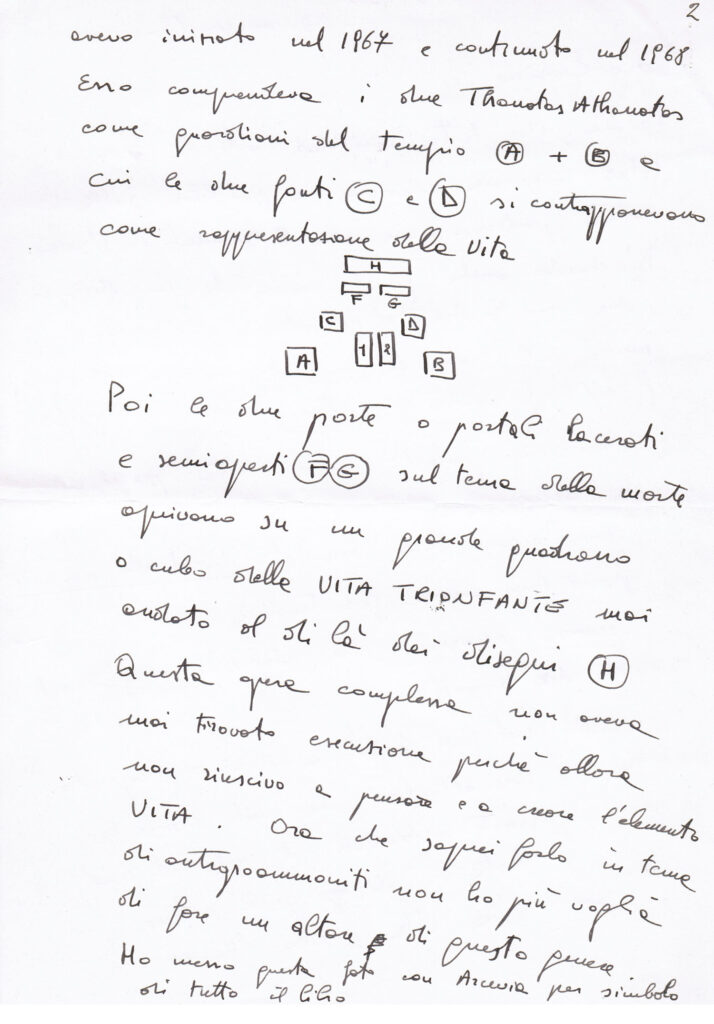 2
avevo iniziato nel 1967 e continuato nel 1968
Esso comprendeva i due Thanatos Athanatos
come guardiani del tempio A + B e
cui le due fonti C e D si contrapponevano
come rappresentazione della vita
H
F G
C D
A 1 2 B
Poi le due porte o portali lacerati
e semiaperti F G sul tema della morte
aprivano su un grande quadrano
o cubo della VITA TRIONFANTE mai
andato al di là dei disegni H
Questa opera complessa non aveva
mai trovato esecuzione perchè allora
non riuscivo a pensare e a creare l'elemento
VITA. Ora che saprei farlo in tema
di antigrammoniti non ho più voglia
di fare un altare di questo genere
Ho messo questa foto con Arcevia per simbolo
di tutto il libro